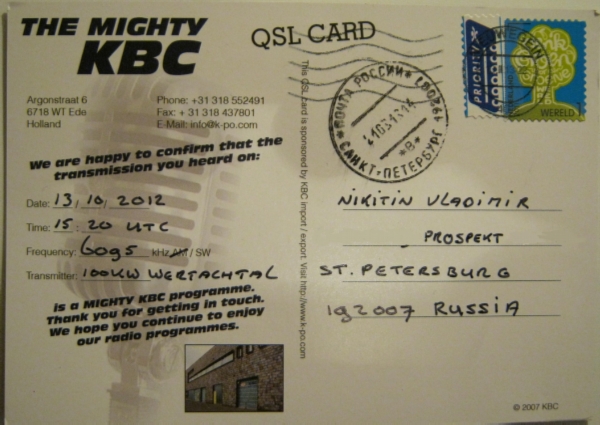 THE MIGHTY
KBC
QSL CARD
Argonstraat 6
6718 WT Ede
Holland
Phone: +31 318 552491
Fax: + 31 318 437801
E-Mail: info@k-po.com
We are happy to confirm that the
transmission you heard on:
Date: 13/10/2012
Time: 15:20 UTC
Frequency: 6095 kHz AM / SW
Transmitter: 100KW WERTACHTAL
is a MIGHTY KBC programme.
Thank you for getting in touch.
We hope you continue to enjoy
our radio programmes.
This QSL card is sponsored by KBC import / export. Visit http://www.k-po.com
PRIORITY
WERELD 1
ПОЧТА РОССИИ
САНКТ-ПЕТЕРБУРГ
NIKITIN VLADIMIR
PROSPEKT
ST. PETERSBURG
192007 RUSSIA
© 2007 KBC